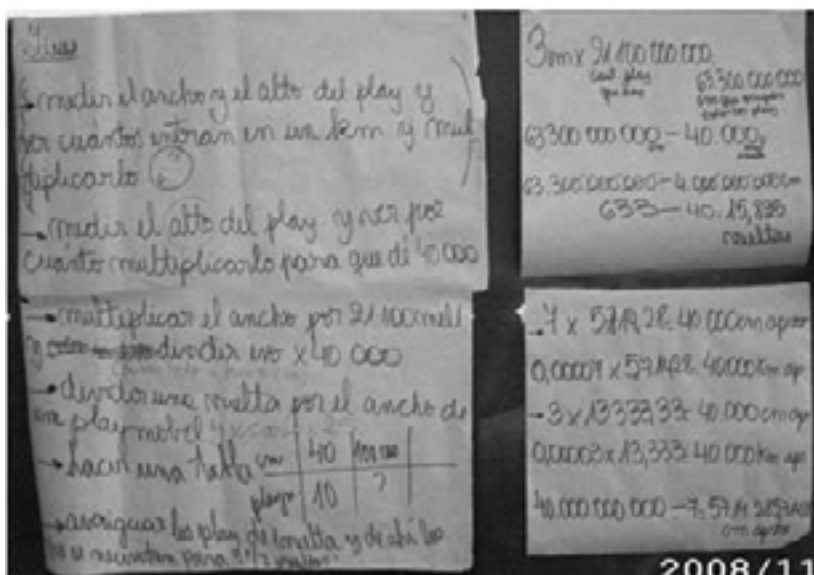 Ideas
→ medir el ancho y el alto del play y
ver cuántos entran en un km y mul
tiplicarlo
→ medir el alto del play y ver por
cuánto multiplicarlo para que dé 40 000
→ multiplicar el ancho por 21 100 mill
y dividir eso x 40 000
→ dividir una vuelta por el ancho de
un playmobil
→ hacer una tabla cm 40 100 000
play 10 ?
→ averiguar los play de 1 vuelta y de ahí los
que se necesitan para 2 1/2 vueltas
3cm x 21 100 000 000
cant. play
que hay
63.300.000.000
63300 000 000 cm — 40.000
63.300.000.000 — 4.000.000.000 cm
633 — 40. 15,825
vueltas
→ 7 x 5714,28 = 40.000 cm aprox
0,00007 x 571428 = 40000 Km apr
→ 3 x 13333,33 = 40.000 cm apro
0,00003 x 13,333 = 40.000 km apr
40.000.000.000 — 7 =
cm aprox
2008/11